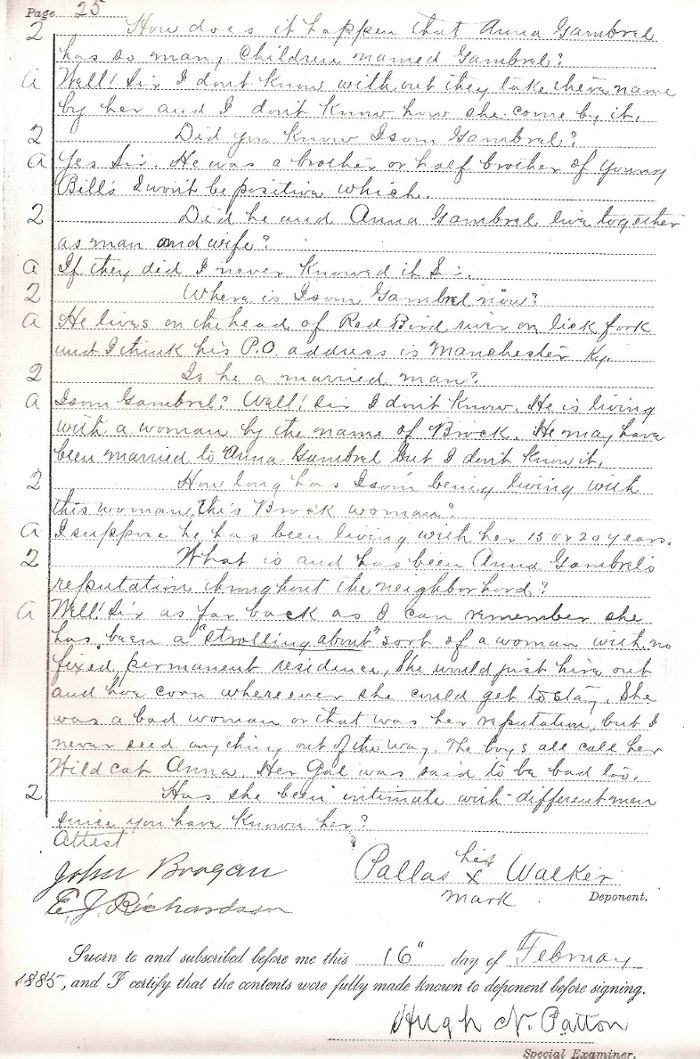 Page 25
Q How does it happen that Anna Gambrel
has so many Children named Gambrel?
A Well! Sir I don't know without they take there name
by her and I don't know how she come by it.
Q Did you know Isom Gambrel?
A Yes Sir. He was a brother or half brother of Young
Bill's I won't be positive which.
Q Did he and Anna Gambrel live together
as man and wife?
A If they did I never knowed it Sir.
Q Where is Isom Gambrel now?
A He lives on the head of Red Bird river on lick fork
and I think his P.O. address is Manchester Ky.
Q Is he a married man?
A Isom Gambrel? Well! Sir I don't know. He is living
with a woman by the name of Brock. He may have
been married to Anna Gambrel but I don't know it.
Q How long has Isom being living with
this woman, this Brock woman?
A I suppose he has been living with her 15 or 20 years.
Q What is and has been Anna Gambrel's
reputation throughout the neighborhood?
A Well! Sir as far back as I can remember she
has been a "strolling about" sort of a woman with no
fixed, permanent residence, She would just hire out
and hoe corn whereever she could get to stay. She
was a bad woman or that was her reputation, but I
never seed anything out of the way. The boys all call her
Wild cat Anna. Her Gal was said to be bad too.
Q Has she been intimate with different men
since you have known her?
Attest
John Brogan
E. J. Richardson
Pallas his x mark Walker
Deponent.
Sworn to and subscribed before me this 16" day of February
1885, and I certify that the contents were fully made known to deponent before signing.
Hugh N. Patton
Special Examiner.